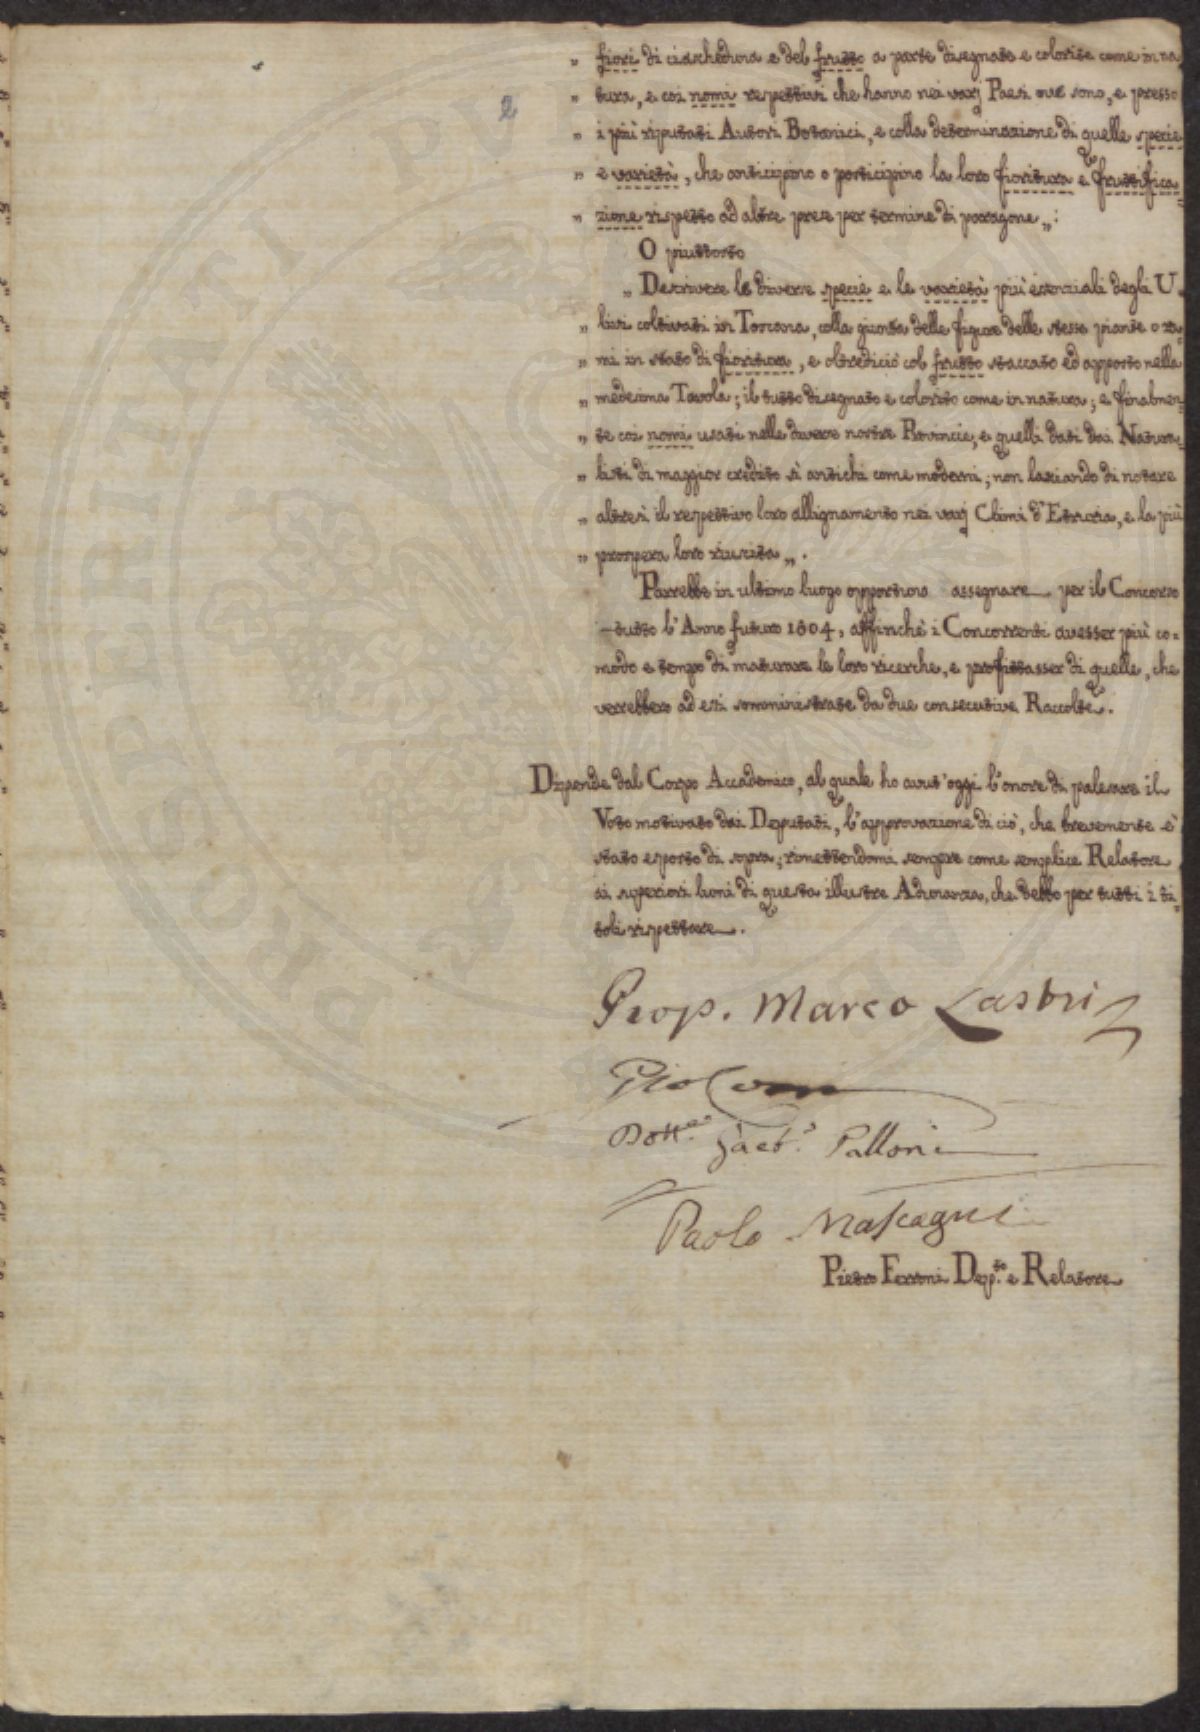 „ fiori di ciascheduna e del frutto a parte disegnate e colorite come in na
2
„ tura, e coi nomi respettivi che hanno nei varj Paesi ove sono, e presso
„ i più riputati Autori Botanici, e colla determinazione di quelle specie
„ e varietà, che anticipino o posticipino la loro fioritura e fruttifica-
„ zione rispetto ad altre prese per termine di paragone „:
O piuttosto
„ Descrivere le diverse specie e le varietà più essenziali degli U-
„ livi coltivati in Toscana, colla giunta delle figure delle stesse piante o ra-
„ mi in stato di fioritura, e oltrediciò col frutto staccato ed apposto nella
„ medesima Tavola; il tutto disegnato e colorito come in natura; e finalmen-
„ te coi nomi usati nelle diverse nostre Provincie, e quelli dati dai Natura-
„ listi di maggior credito sì antichi come moderni; non lasciando di notare
„ altresì il respettivo loro allignamento nei varj Climi d'Etruria, e la più
„ prospera loro riuscita „.
Parrebbe in ultimo luogo opportuno assegnare per il Concorso
tutto l'Anno futuro 1804, affinchè i Concorrenti avesser più co-
modo e tempo di maturare le loro ricerche, e profittasser di quelle, che
verrebbero ad essi somministrate da due consecutive Raccolte.
Dipende dal Corpo Accademico, al quale ho avut'oggi l'onore di palesare il
Voto motivato dai Deputati, l'approvazione di ciò, che brevemente è
stato esposto di sopra; rimettendomi sempre come semplice Relatore
ai superiori lumi di questa illustre Adunanza, che debbo per tutti i ti-
toli rispettare.
Prop. Marco Lastri
Pio
Dott.re Gaet.o Palloni
Paolo Mascagni
Pietro Ferroni Dep.to e Relatore
PUBBLICI